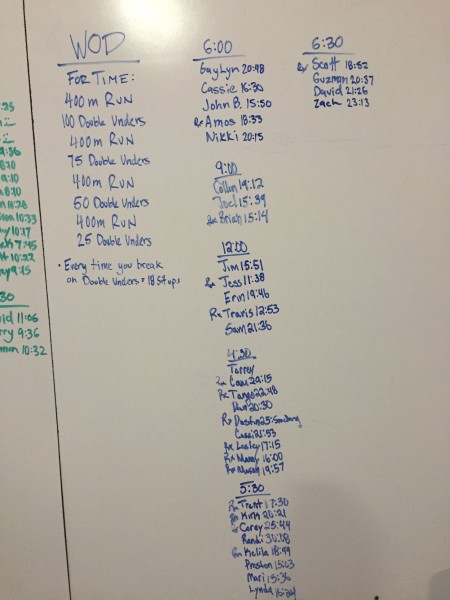 WOD
FOR TIME:
400 m RUN
100 Double Unders
400 m RUN
75 Double Unders
400 m RUN
50 Double Unders
400 m RUN
25 Double Unders
• Every time you break
on Double Unders = 18 Situps
6:00
Gaylyn 20:48
Cassie 16:30
John B. 15:50
Rx Amos 18:33
Nikki 20:15
9:00
Collin 19:12
Joel 15:39
Rx Brian 15:14
12:00
Jim 15:51
Rx Jess 11:38
Erin 19:46
Rx Travis 12:53
Sam 21:36
4:30
Torrey
Rx 29:15
Rx Tango 22:48
20:30
Rx Dustin 25:
Cassi 21:53
Rx Lesley 17:15
Rx 16:00
Rx 19:57
5:30
Rx Trent 17:30
Rx Kirk 20:21
Corey 25:44
Randi 30:08
Rx Kelila 18:59
Preston 15:03
Mari 15:36
Lynda
6:30
Rx Scott 18:52
Guzman 20:37
David 21:26
Zach 23:13
9:36
9:10
8:20
11:28
10:33
10:17
7:45
10:22
9:15
:30
11:06
9:36
10:32